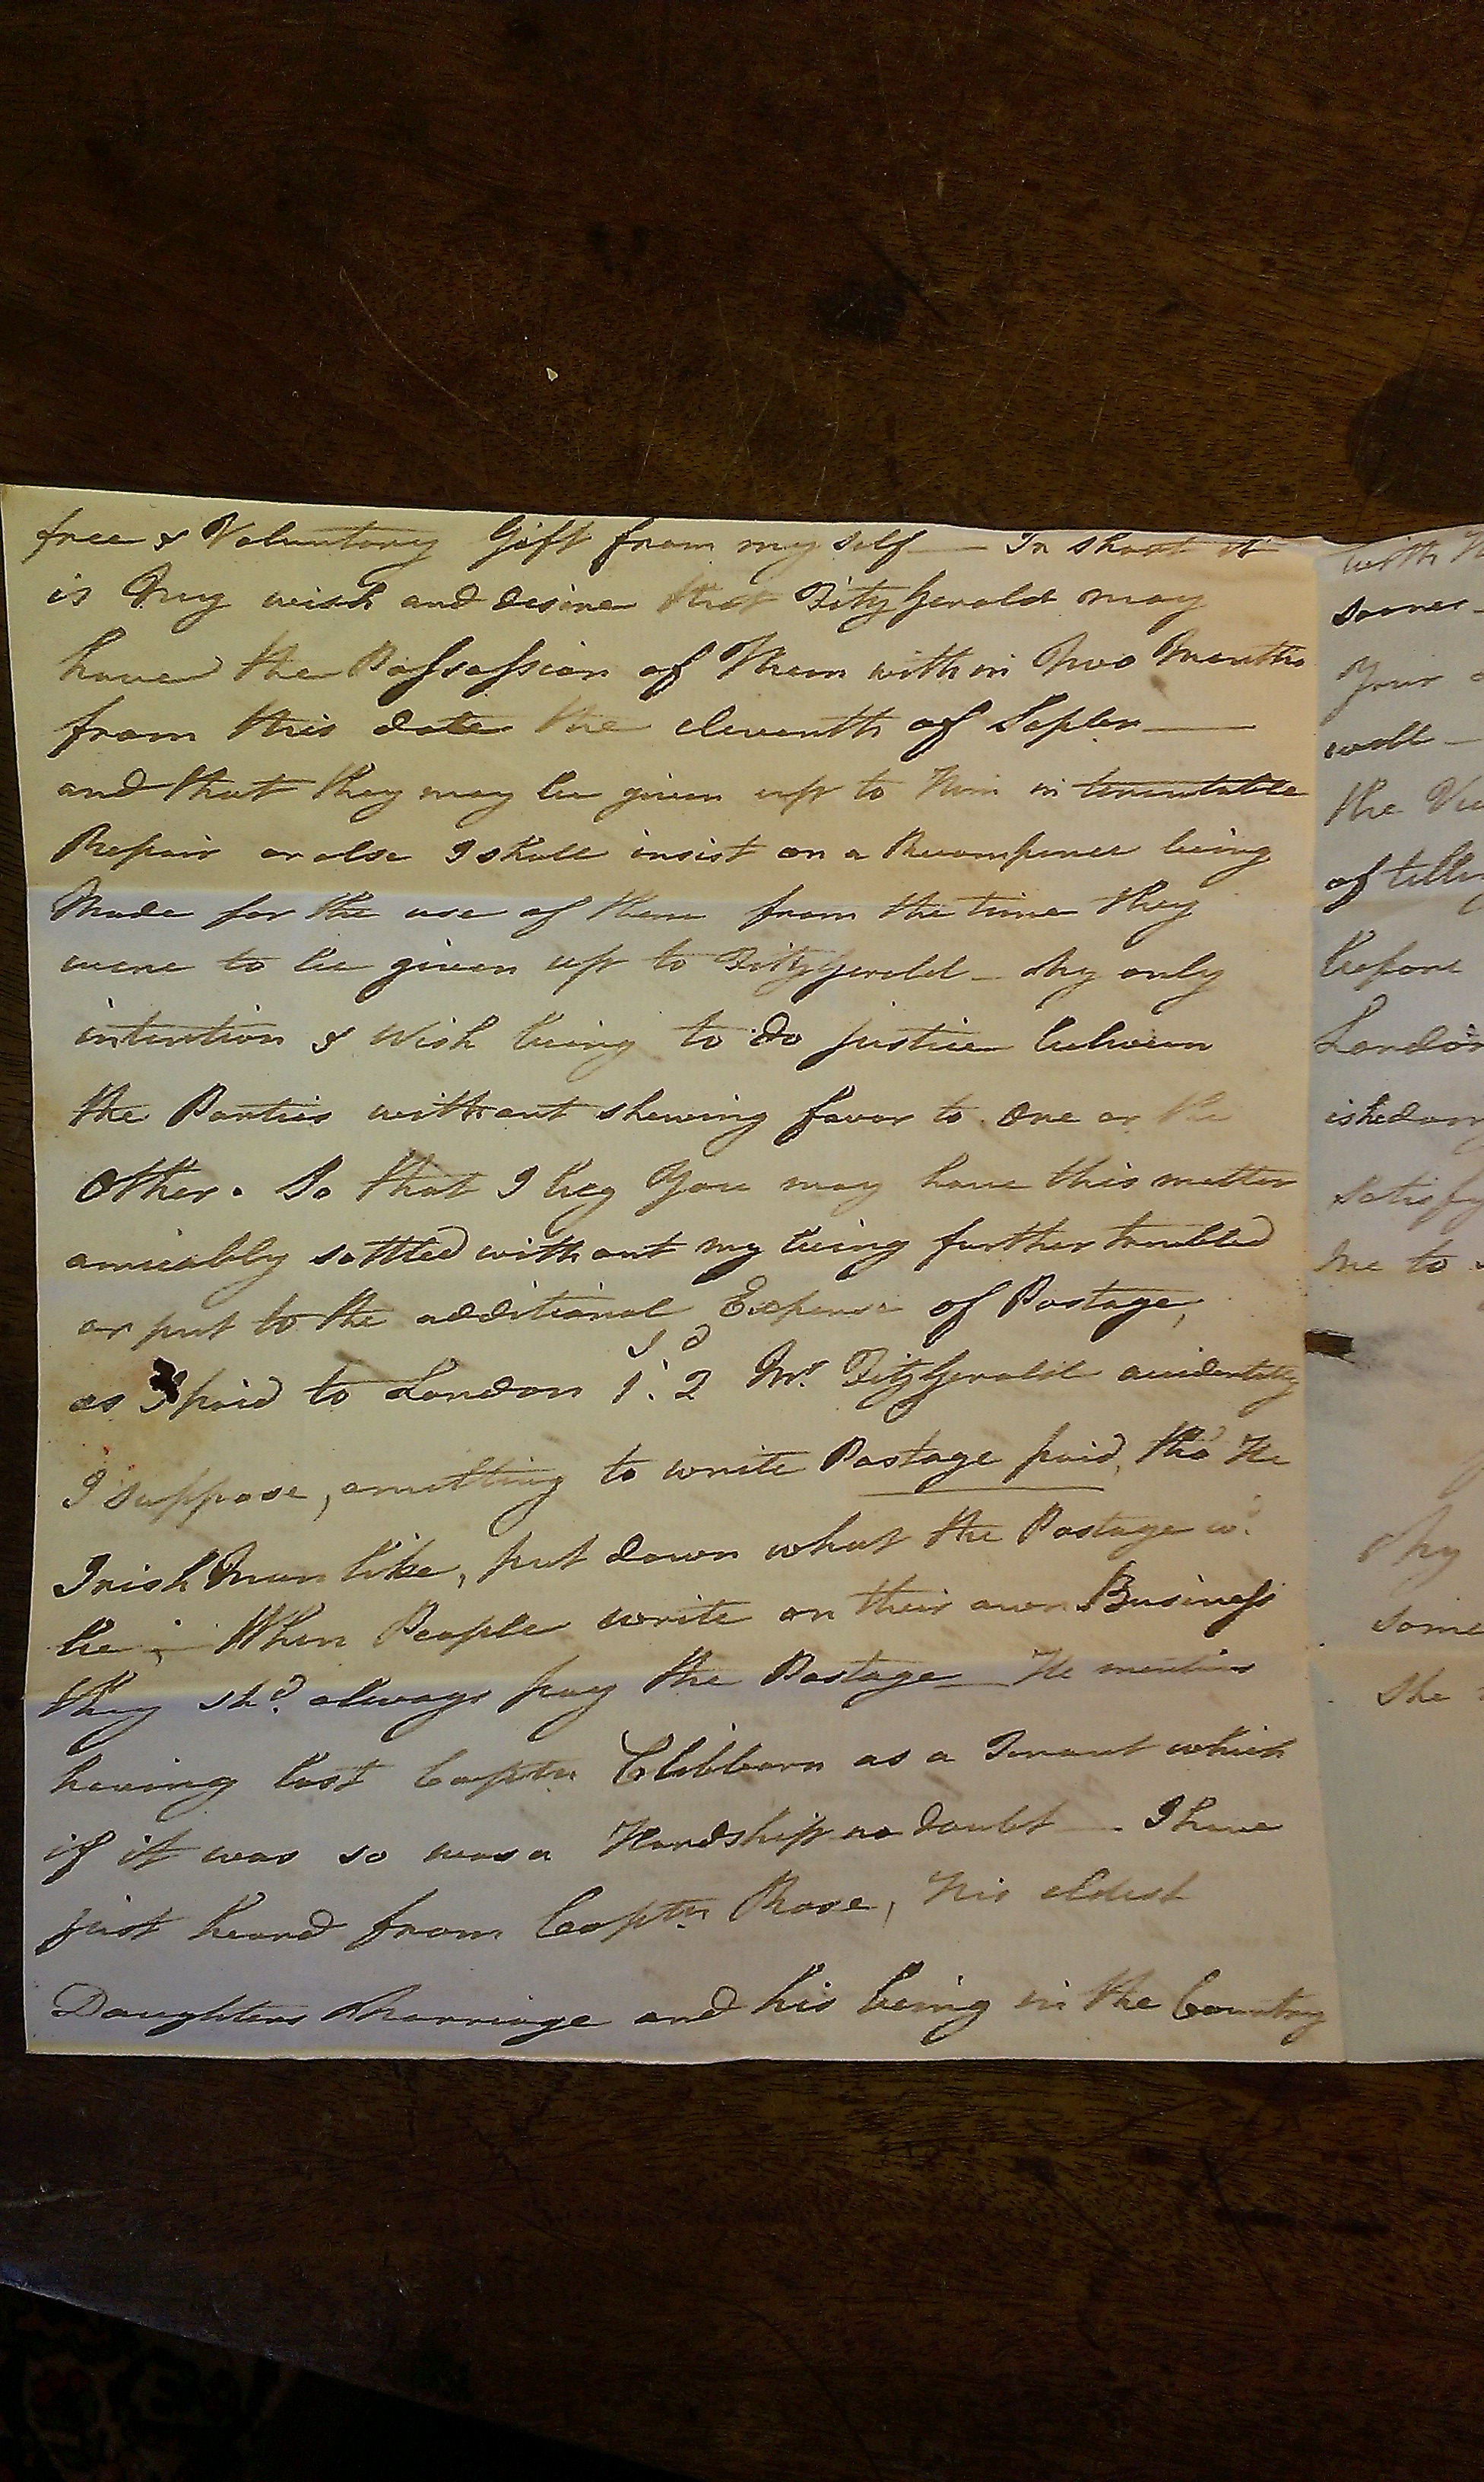 free & Voluntary Gift from my self — In short it
is My wish and desire that FitzGerald may
have the Possession of Them within Two Months
from this date the eleventh of Septbr —
and that they may be given up to Him in tenentable
Repair or else I shall insist on a Recompence being
Made for the use of them from the time they
were to be given up to FitzGerald — My only
intention & Wish being to do justice between
the Parties without shewing favor to One or the
Other. So that I beg You may have this matter
amicably settled without my being further troubled
or put to the additional Expense of Postage,
as I paid to London 1s:2d Mr. FitzGerald accidentally
I suppose, omitting to write Postage paid, tho' He
Irish Man like, put down what the Postage wd.
be; — When People write on their own Business
they shd. always pay the Postage — He mentions
having lost Captn Clibborn as a Tenant which
if it was so was a Hardship no doubt — I have
just heard from Captn. Rose, His eldest
Daughters Marriage and his being in the Country
with
sooner —
Your
well —
the
of
before
London
satisfy
me to
My
some
She